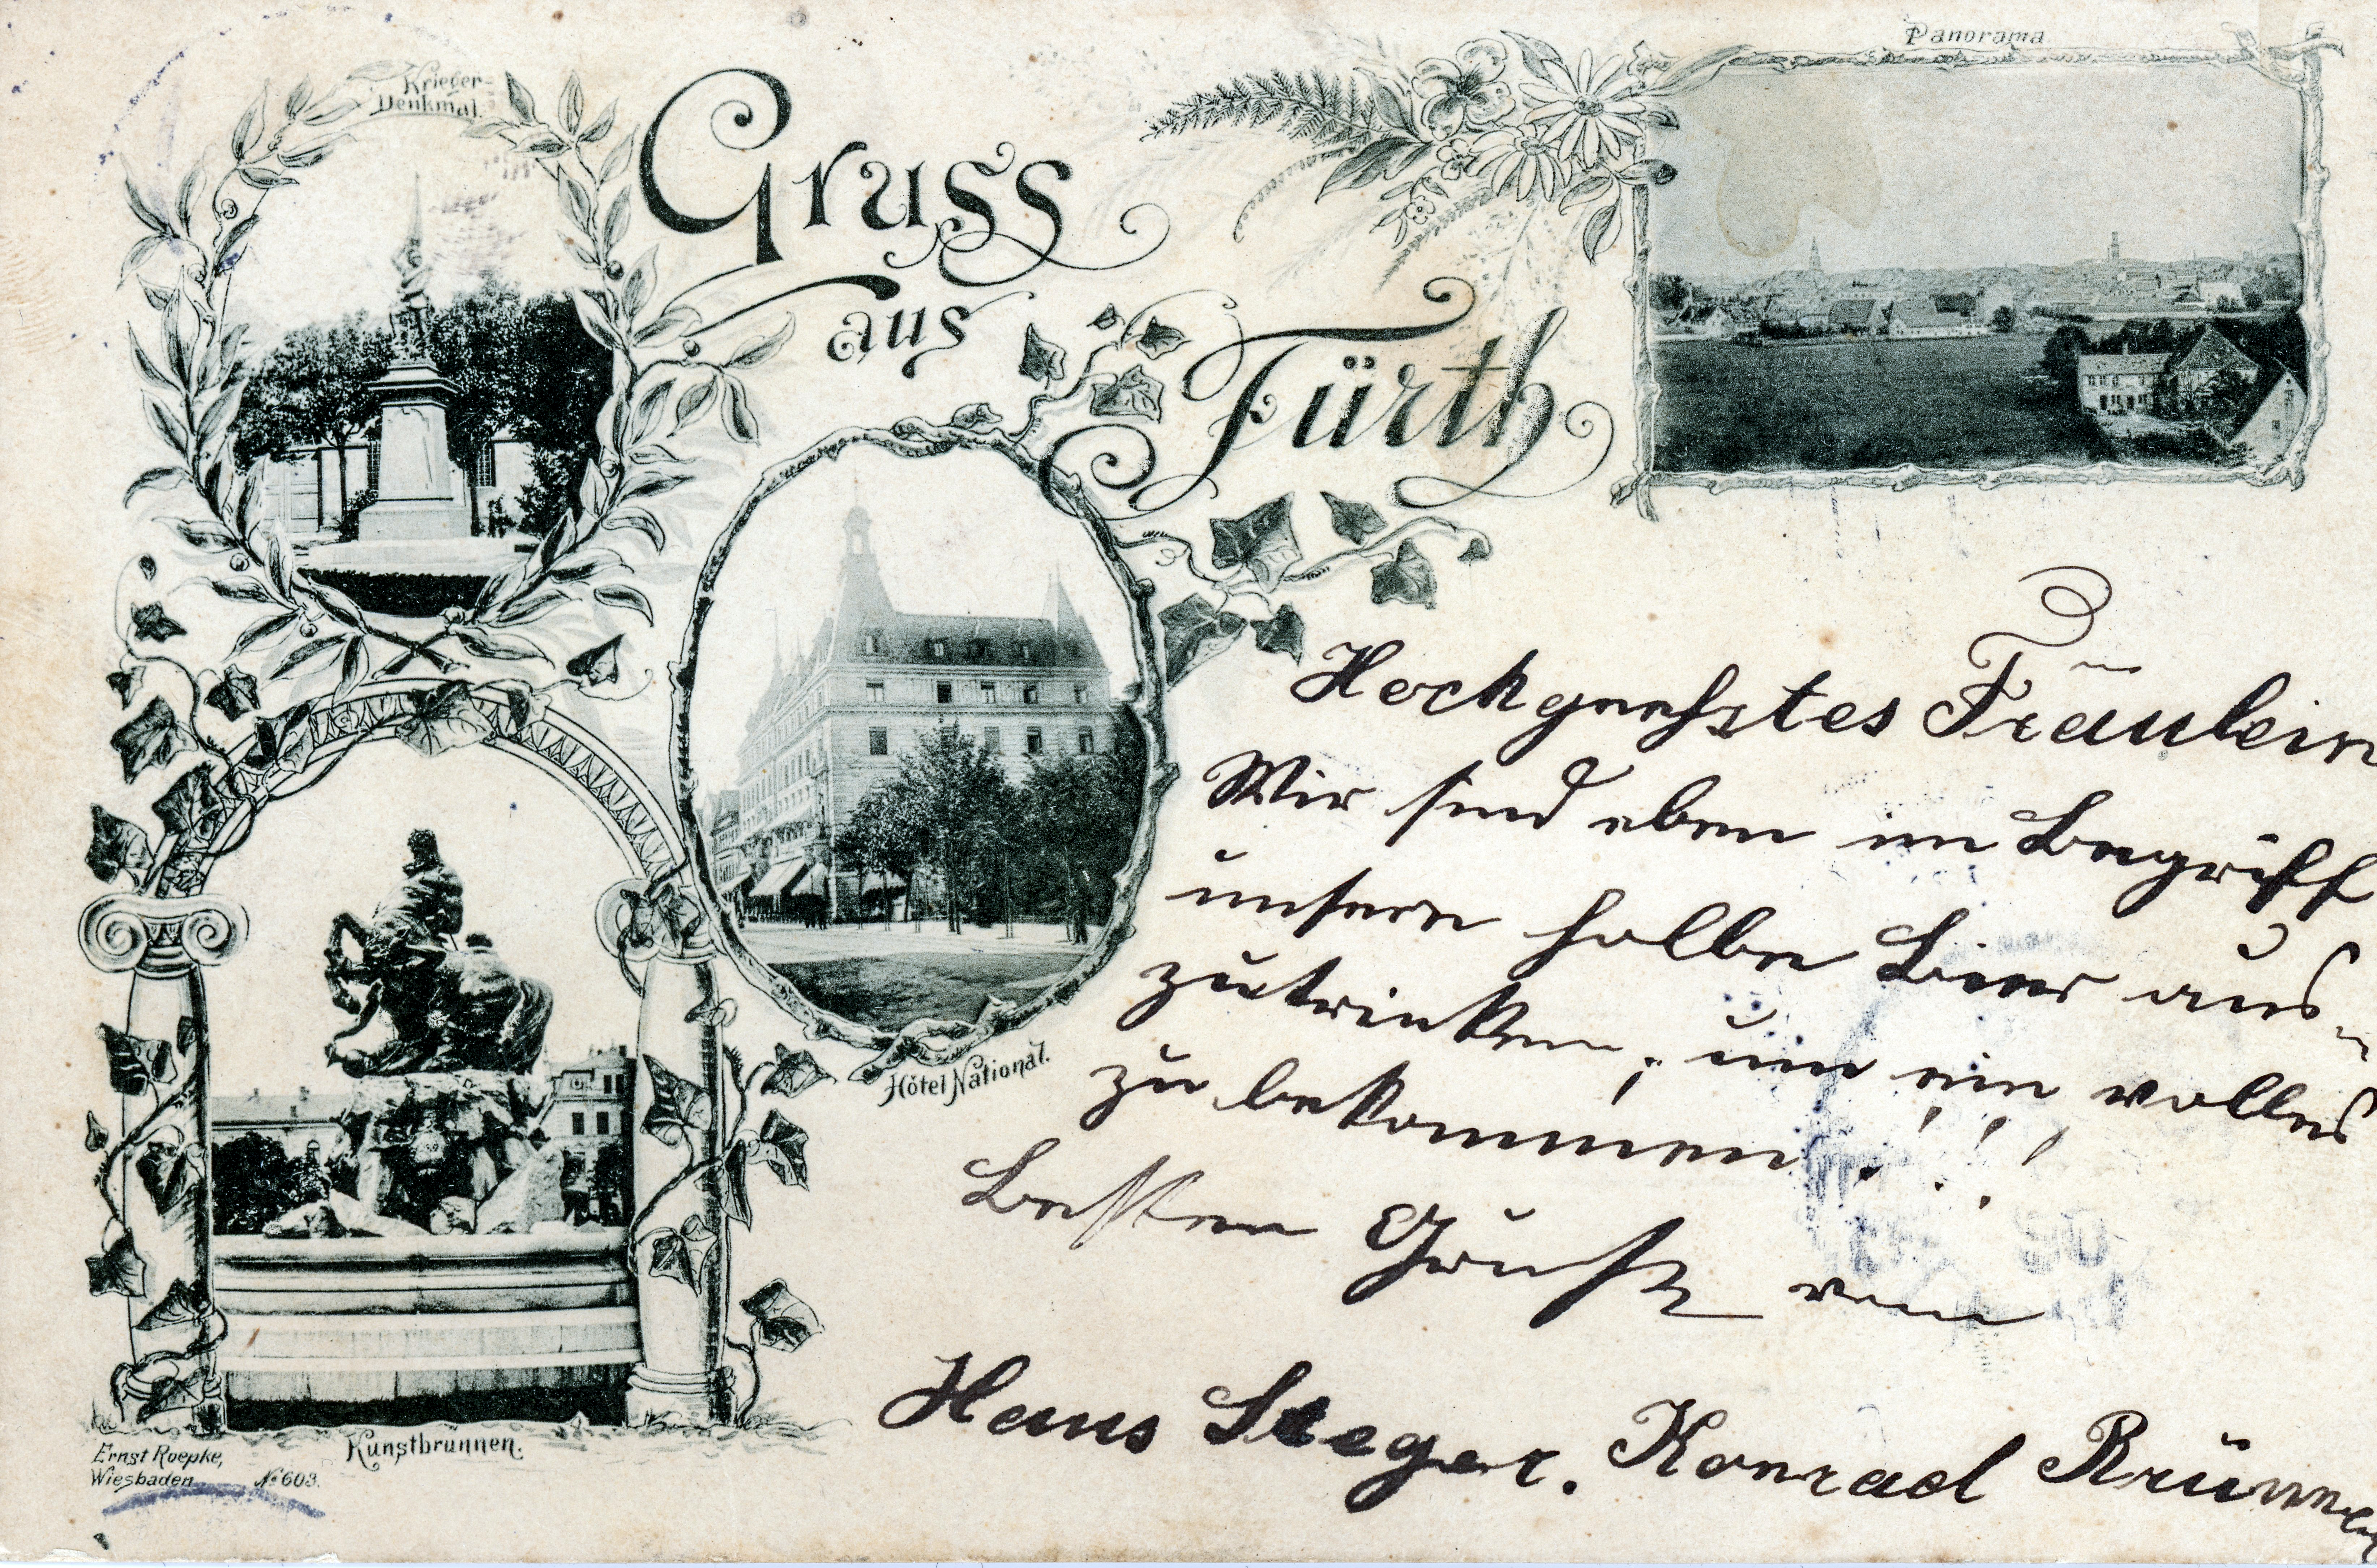 Krieger-
Denkmal.
Gruss
aus
Fürth
Panorama
Hôtel National.
Kunstbrunnen.
Ernst Roepke,
Wiesbaden
No 603.
Hochgeehrtestes Fräulein
Wir sind eben im Begriff
unsere halbe Bier aus-
zutrinken, um ein volles
zu bekommen!!!
Besten Gruß von
Hans Seeger. Konrad